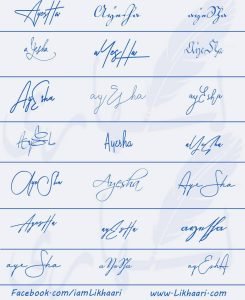 Ayesha Ayesha Ayesha
aYesha aYesHa Ayesha
AyEsha ayEsha ayEsha
Ayesha Ayesha aYesha
Ayesha Ayesha Aye Sha
Ayesha ayEsHa ayesha
aye Sha aYesha ayEshA
Facebook.com/iamLikhaari www.Likhaari.com